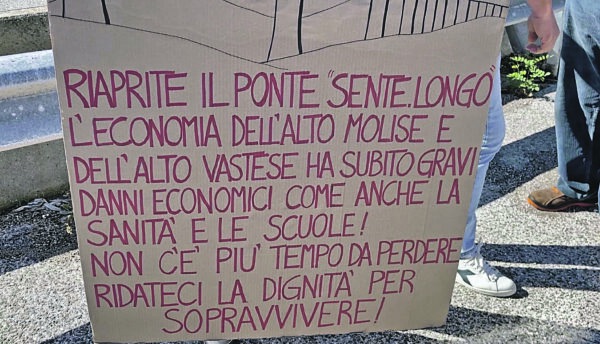 RIAPRITE IL PONTE "SENTE.LONGO"
L'ECONOMIA DELL'ALTO MOLISE E
DELL'ALTO VASTESE HA SUBITO GRAVI
DANNI ECONOMICI COME ANCHE LA
SANITÀ E LE SCUOLE!
NON C'È PIU' TEMPO DA PERDERE
RIDATECI LA DIGNITÀ PER
SOPRAVVIVERE!